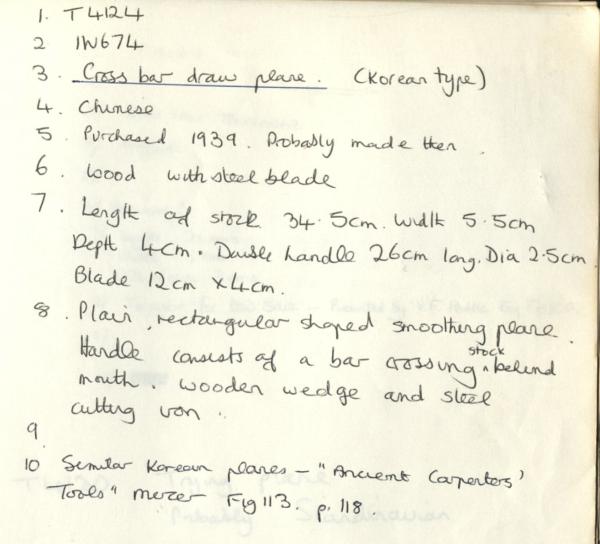 1. T4124
2 IW674
3. Cross bar draw plane. (Korean type)
4. Chinese
5. Purchased 1939. Probably made then.
6. Wood with steel blade
7. Length of stock 34.5cm. Width 5.5cm
Depth 4cm. Double handle 26cm long. Dia 2.5cm
Blade 12cm x 4cm.
8. Plain, rectangular shaped smoothing plane.
Handle consists of a bar crossing stock behind
mouth. Wooden wedge and steel
cutting iron.
9
10 Similar Korean planes - "Ancient Carpenters'
Tools" Mercer Fig 113. p. 118.